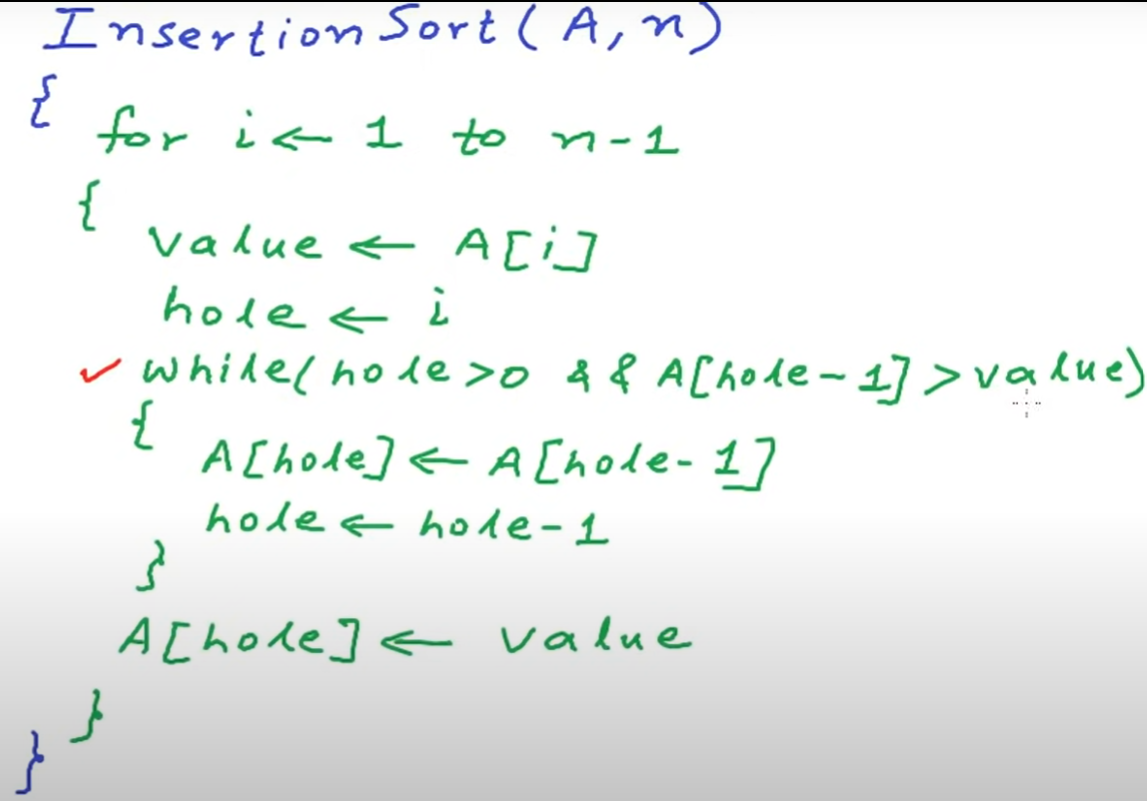 InsertionSort(A,n)
{
for i ← 1 to n-1
{
value ← A[i]
hole ← i
✓ while(hole>0 && A[hole-1]>value)
{
A[hole] ← A[hole-1]
hole ← hole-1
}
A[hole] ← value
}
}